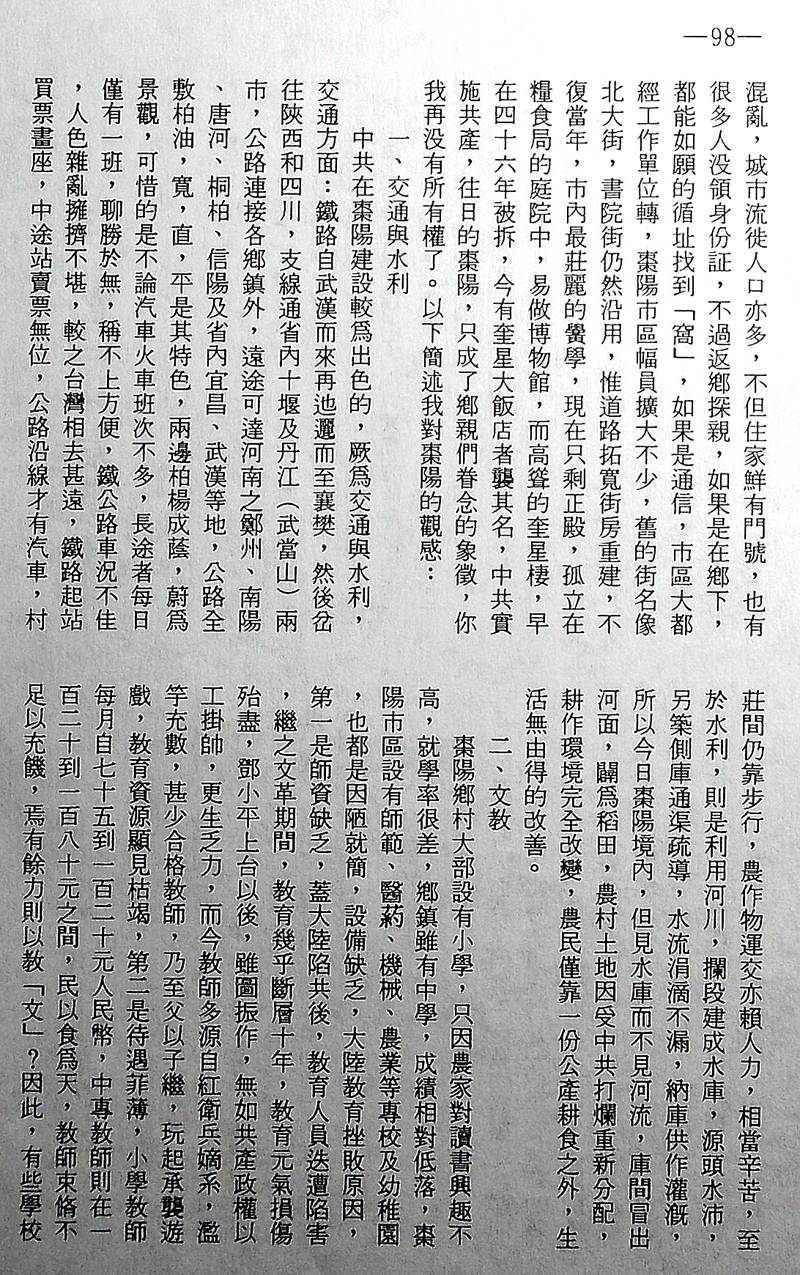 —98—
混亂，城市流徙人口亦多，不但住家鮮有門號，也有
很多人没領身份証，不過返鄉探親，如果是在鄉下，
都能如願的循址找到「窩」，如果是通信，市區大都
經工作單位轉，棗陽市區幅員擴大不少，舊的街名像
北大街，書院街仍然沿用，惟道路拓寬街房重建，不
復當年，市內最莊麗的黌學，現在只剩正殿，孤立在
糧食局的庭院中，易做博物館，而高聳的奎星棲，早
在四十六年被拆，今有奎星大飯店者襲其名，中共實
施共產，往日的棗陽，只成了鄉親們眷念的象徵，你
我再没有所有權了。以下簡述我對棗陽的觀感：
一、交通與水利
中共在棗陽建設較爲出色的，厥爲交通與水利，
交通方面：鐵路自武漢而來再迆邐而至襄樊，然後岔
往陝西和四川，支線通省內十堰及丹江（武當山）兩
市，公路連接各鄉鎮外，遠途可達河南之鄭州、南陽
、唐河、桐柏、信陽及省內宜昌、武漢等地，公路全
敷柏油，寬，直，平是其特色，兩邊柏楊成蔭，蔚爲
景觀，可惜的是不論汽車火車班次不多，長途者每日
僅有一班，聊勝於無，稱不上方便，鐵公路車況不佳
，人色雜亂擁擠不堪，較之台灣相去甚遠，鐵路起站
買票畫座，中途站賣票無位，公路沿線才有汽車，村
莊間仍靠步行，農作物運交亦賴人力，相當辛苦，至
於水利，則是利用河川，攔段建成水庫，源頭水沛，
另築側庫通渠疏導，水流涓滴不漏，納庫供作灌漑，
所以今日棗陽境內，但見水庫而不見河流，庫間冒出
河面，闢爲稻田，農村土地因受中共打爛重新分配，
耕作環境完全改變，農民僅靠一份公產耕食之外，生
活無由得的改善。
二、文教
棗陽鄉村大部設有小學，只因農家對讀書興趣不
高，就學率很差，鄉鎮雖有中學，成績相對低落，棗
陽市區設有師範、醫葯、機械、農業等專校及幼稚園
，也都是因陋就簡，設備缺乏，大陸教育挫敗原因，
第一是師資缺乏，蓋大陸陷共後，教育人員迭遭陷害
，繼之文革期間，教育幾乎斷層十年，教育元氣損傷
殆盡，鄧小平上台以後，雖圖振作，無如共產政權以
工掛帥，更生乏力，而今教師多源自紅衛兵嫡系，濫
竽充數，甚少合格教師，乃至父以子繼，玩起承襲遊
戲，教育資源顯見枯竭，第二是待遇菲薄，小學教師
每月自七十五到一百二十元人民幣，中專教師則在一
百二十到一百八十元之間，民以食爲天，教師束脩不
足以充饑，焉有餘力則以教「文」？因此，有些學校